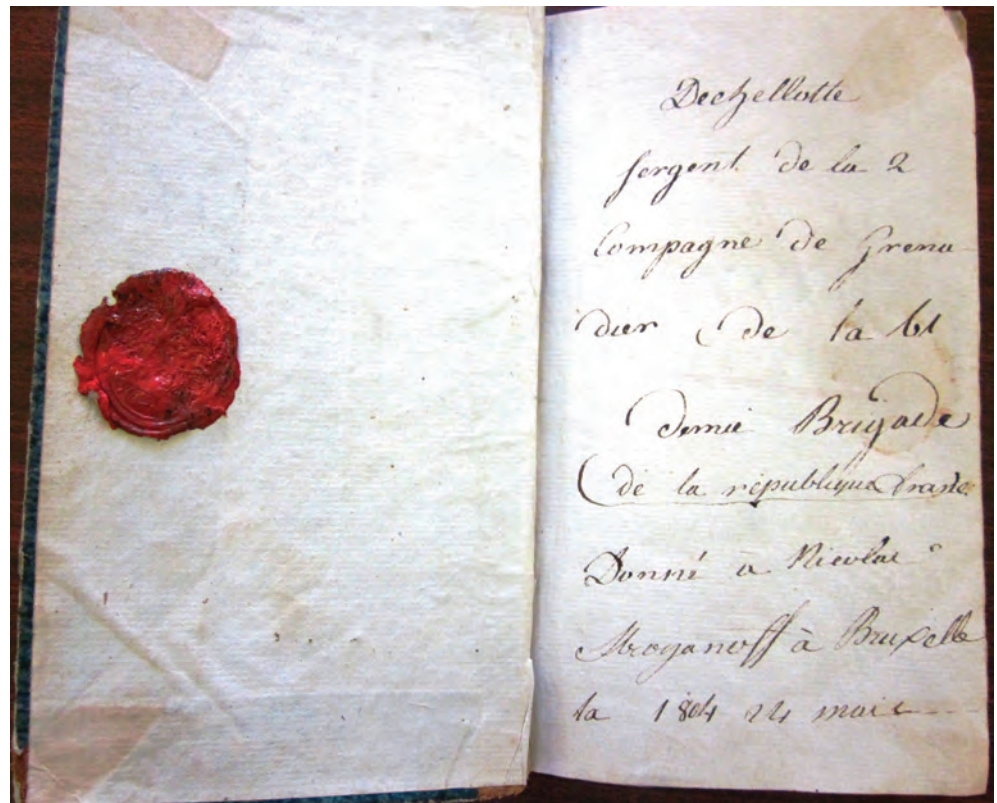 Dechellotte
sergent de la 2
Compagne de Grena
dier de la 61
demie Brigade
de la republique franse
Donné a Nicolas
Stroganoff à Bruxelle
la 1804 24 mais